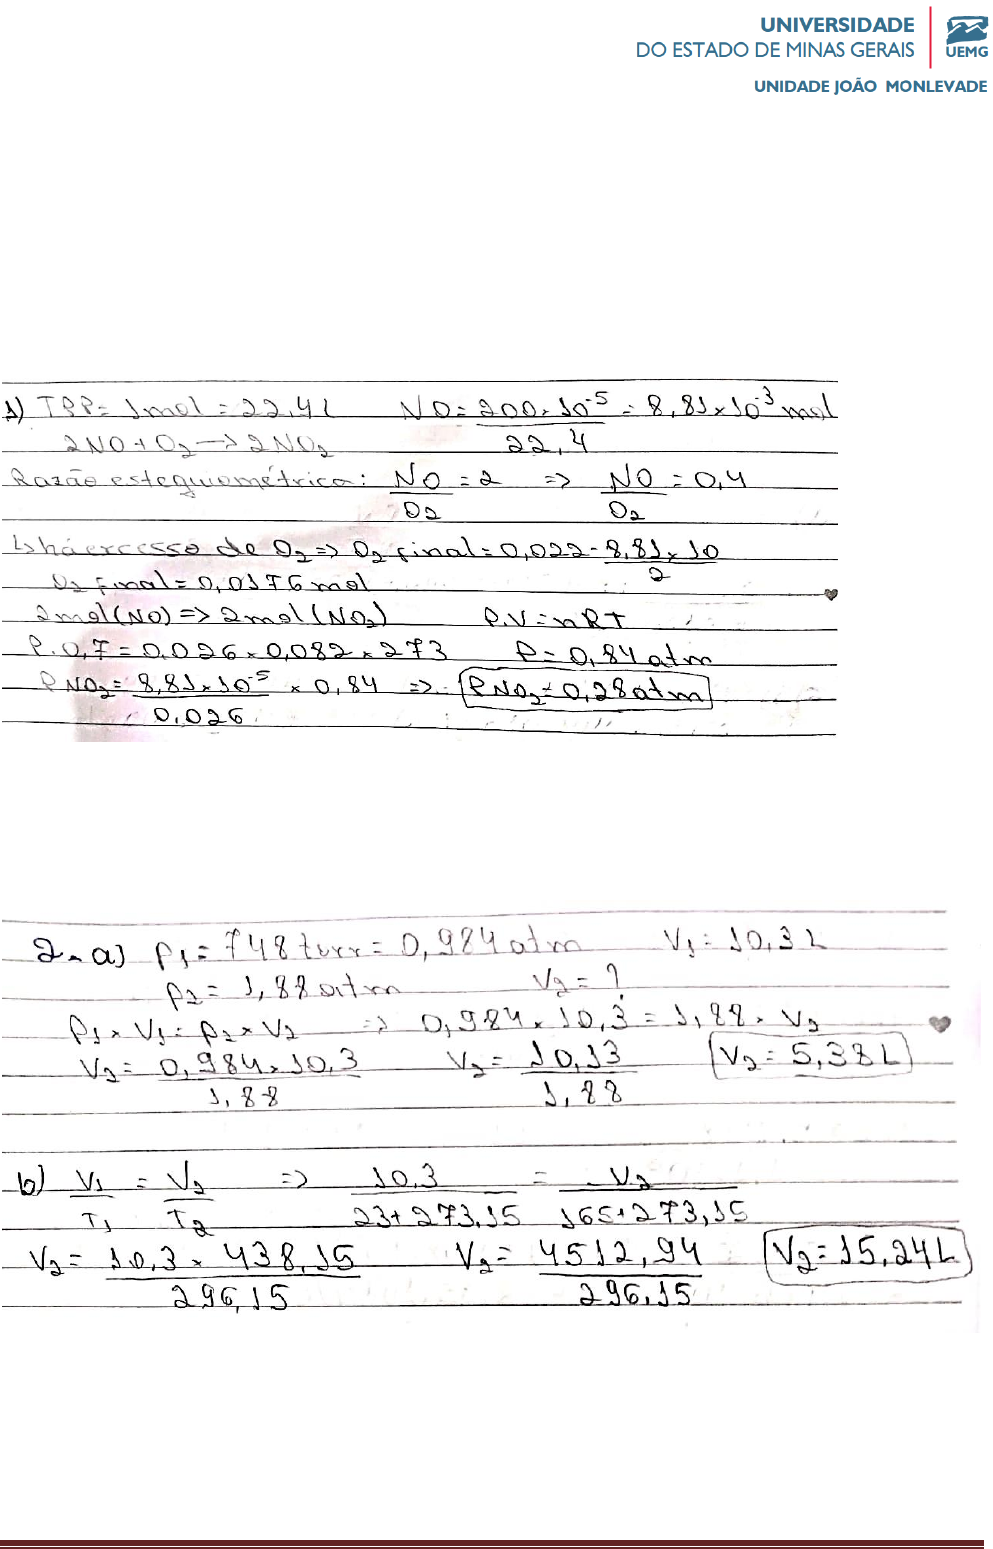 UNIVERSIDADE
DO ESTADO DE MINAS GERAIS
UEMG
UNIDADE JOÃO MONLEVADE
1) TPP= 1mol = 22,4L NO= 200×10⁻⁵/22,4 = 8,81×10⁻³ mol
2NO+O₂ → 2NO₂
Razão estequiométrica: NO/O₂ = 2 => NO/O₂ = 0,4
↳ há excesso de O₂ => O₂ final = 0,022 - 8,81×10/2
O₂ final = 0,0176 mol
2mol(NO) => 2mol(NO₂) P.V=nRT
P.0,7 = 0,026×0,082×273 P= 0,84 atm
P NO₂= 8,81×10⁻⁵/0,026 × 0,84 => P NO₂= 0,28 atm
2. a) P₁= 748 torr = 0,984 atm V₁= 10,3 L
P₂= 1,88 atm V₂= ?
P₁×V₁= P₂×V₂ => 0,984×10,3 = 1,88×V₂
V₂= 0,984×10,3/1,88 V₂= 10,13/1,88 V₂= 5,38 L
b) V₁/T₁ = V₂/T₂ => 10,3/23+273,15 = V₂/165+273,15
V₂= 10,3×438,15/296,15 V₂= 4512,94/296,15 V₂= 15,24L